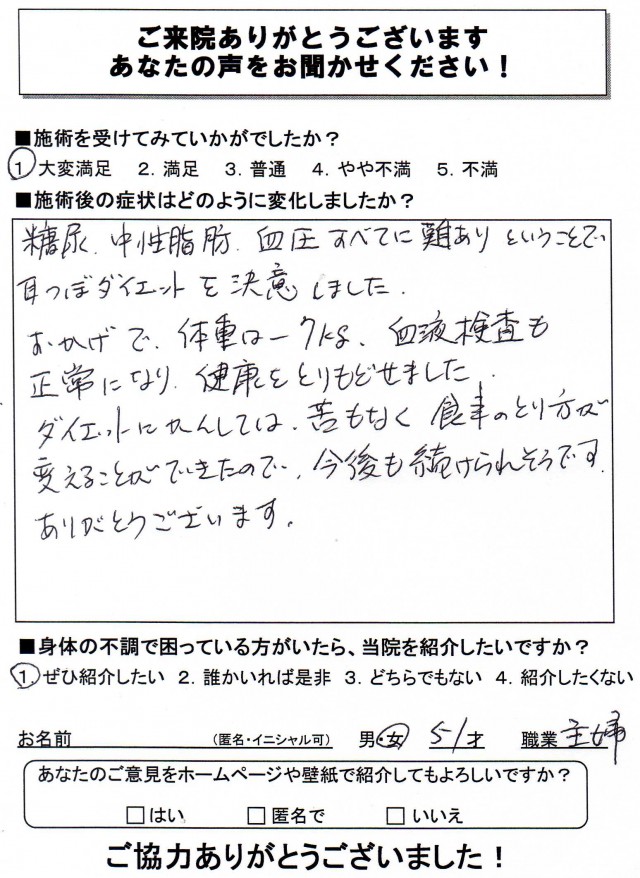 ご来院ありがとうございます
あなたの声をお聞かせください！
■施術を受けてみていかがでしたか？
1 大変満足 2. 満足 3. 普通 4. やや不満 5. 不満
■施術後の症状はどのように変化しましたか？
糖尿、中性脂肪、血圧すべてに難ありということで、
耳つぼダイエットを決意しました。
おかげで、体重は－7kg、血液検査も
正常になり、健康をとりもどせました。
ダイエットにかんしては、苦もなく食事のとり方が
変えることができたので、今後も続けられそうです。
ありがとうございます。
■身体の不調で困っている方がいたら、当院を紹介したいですか？
1 ぜひ紹介したい 2. 誰かいれば是非 3. どちらでもない 4. 紹介したくない
お名前 （匿名・イニシャル可） 男・女 51才 職業 主婦
あなたのご意見をホームページや壁紙で紹介してもよろしいですか？
□はい □匿名で □いいえ
ご協力ありがとうございました！